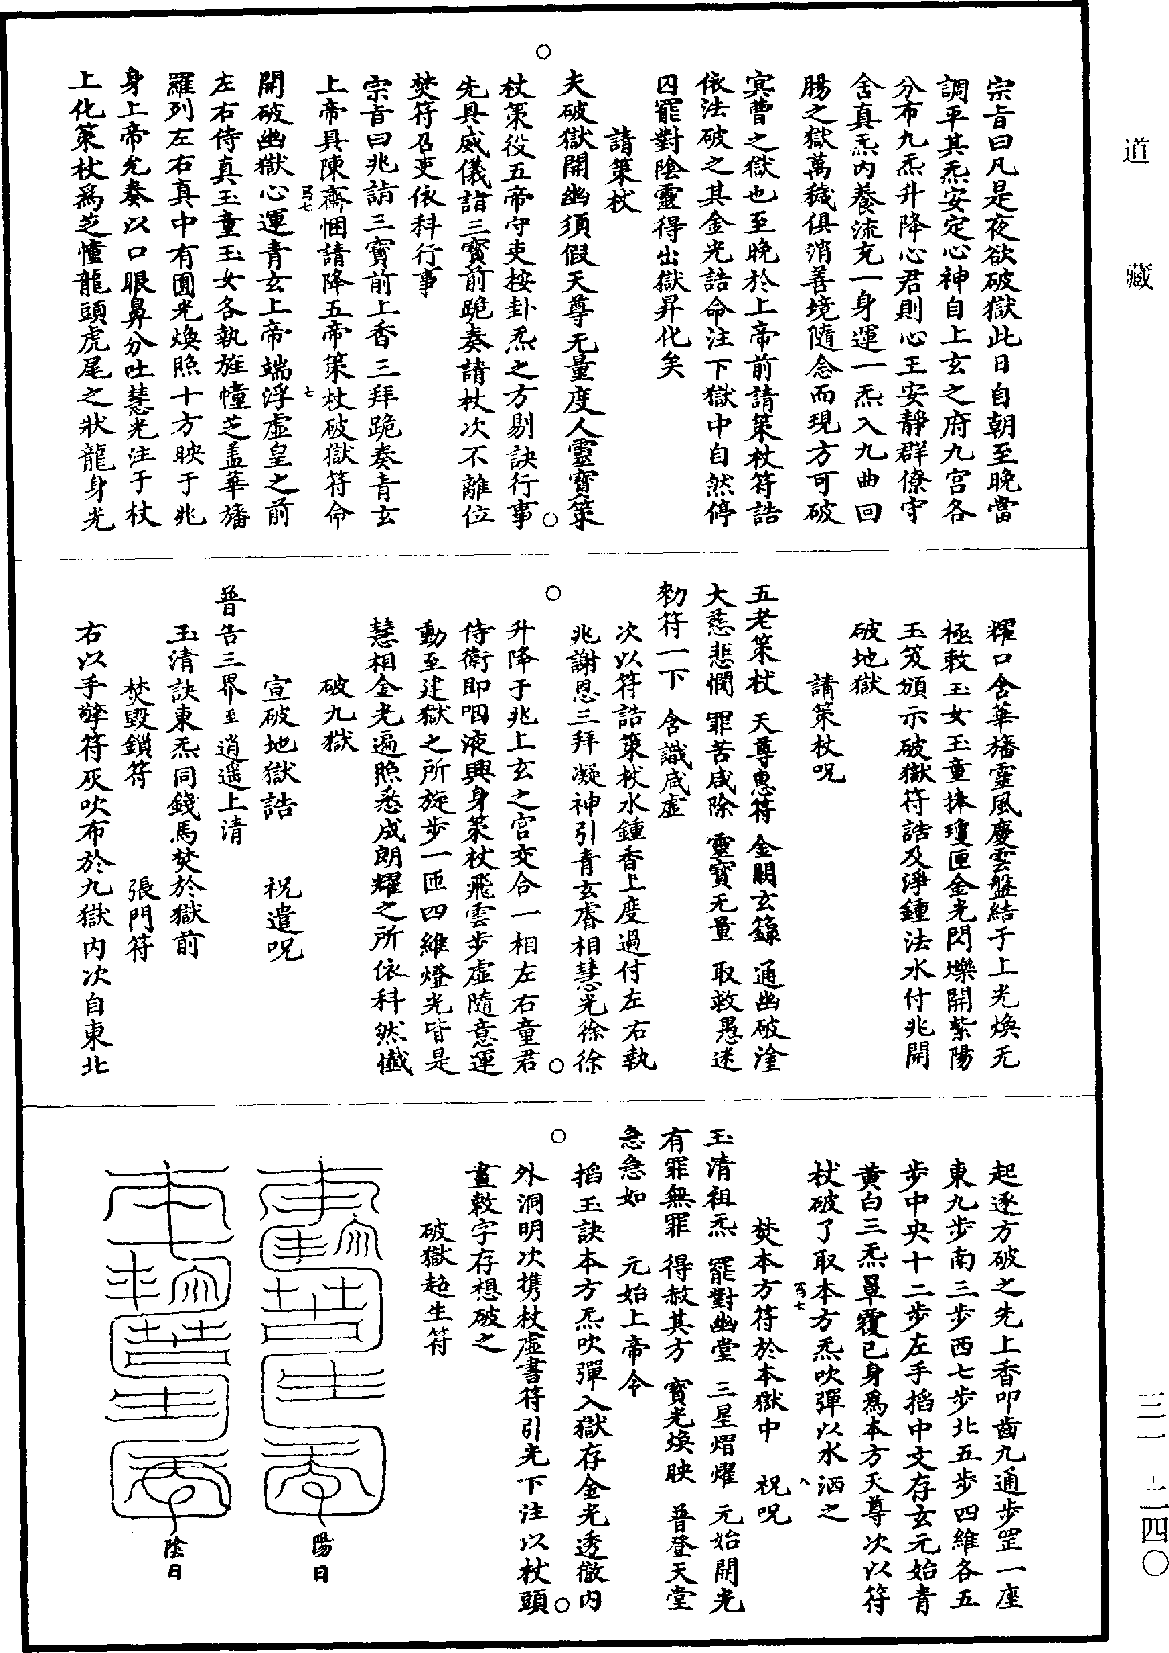 宗旨曰凡是夜欲破獄此日自朝至晚當
調平其炁安定心神自上玄之府九宮各
分布九炁升降心君則心王安靜群僚守
舍真炁內養流充一身運一炁入九曲回
腸之獄萬穢俱消善境隨念而現方可破
冥曹之獄也至晚於上帝前請策杖符誥
依法破之其金光誥命注下獄中自然停
囚罷對陰靈得出獄昇化矣
請策杖
夫破獄開幽須假天尊无量度人靈寶策
杖策役五帝守吏按卦炁之方剔訣行事
先具威儀詣三寶前跪奏請杖次不離位
焚符召吏依科行事
宗旨曰兆詣三寶前上香三拜跪奏青玄
上帝具陳齋悃請降五帝策杖破獄符命
開破幽獄心運青玄上帝端浮虛皇之前
左右侍真玉童玉女各執旌幢芝蓋華旛
羅列左右真中有圓光煥照十方映于兆
身上帝允奏以口眼鼻分吐慧光注于杖
上化策杖為芝幢龍頭虎尾之狀龍身光
耀口含華旛靈風慶雲盤結于上光煥无
極敕玉女玉童捧瓊匣金光閃爍開紫陽
玉笈頒示破獄符誥及淨鍾法水付兆開
破地獄
請策杖呪
五老策杖 天尊惠符 金關玄籙 通幽破塗
大慈悲憫 罪苦咸除 靈寶无量 取救愚迷
勑符一下 含識咸虛
次以符誥策杖水鍾香上度過付左右執
兆謝恩三拜凝神引青玄睿相慧光徐徐
升降于兆上玄之宮交合一相左右童君
侍衛即咽液興身策杖飛雲步虛隨意運
動至建獄之所旋步一匝四維燈光皆是
慧相金光遍照悉成朗耀之所依科然懺
破九獄
宣破地獄誥 祝遣呪
普告三界至逍遥上清
玉清訣東炁同錢馬焚於獄前
焚毀鎖符 張門符
右以手擎符灰吹布於九獄內次自東北
起逐方破之先上香叩齒九通步罡一座
東九步南三步西七步北五步四維各五
步中央十二步左手掐中文存玄元始青
黃白三炁單覆已身為本方天尊次以符
杖破了取本方炁吹彈以水洒之
焚本方符於本獄中 祝呪
玉清祖炁 罷對幽堂 三星熠燿 元始開光
有罪無罪 得赦其方 寶光煥映 普登天堂
急急如 元始上帝令
掐玉訣本方炁吹彈入獄存金光透徹內
外洞明次携杖虛書符引光下注以杖頭
畫敕字存想破之
破獄超生符
陽日
陰日
道藏
三一 二四〇